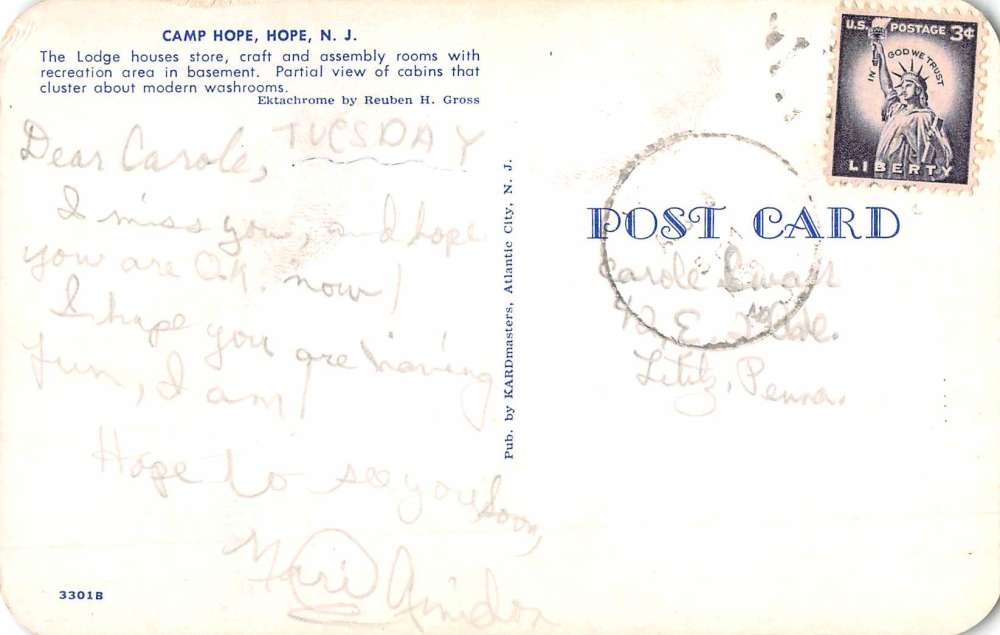 CAMP HOPE, HOPE, N. J.
The Lodge houses store, craft and assembly rooms with
recreation area in basement. Partial view of cabins that
cluster about modern washrooms.
Ektachrome by Reuben H. Gross
TUESDAY
Dear Carole,
I miss you, and hope
you are O.K. now!
I hope you are having
fun, I am!
Hope to see you soon,
3301B
Pub. by KARDmasters, Atlantic City, N. J.
U.S. POSTAGE 3¢
IN GOD WE TRUST
LIBERTY
POST CARD
Carole
42 E.
Lititz, Penna.